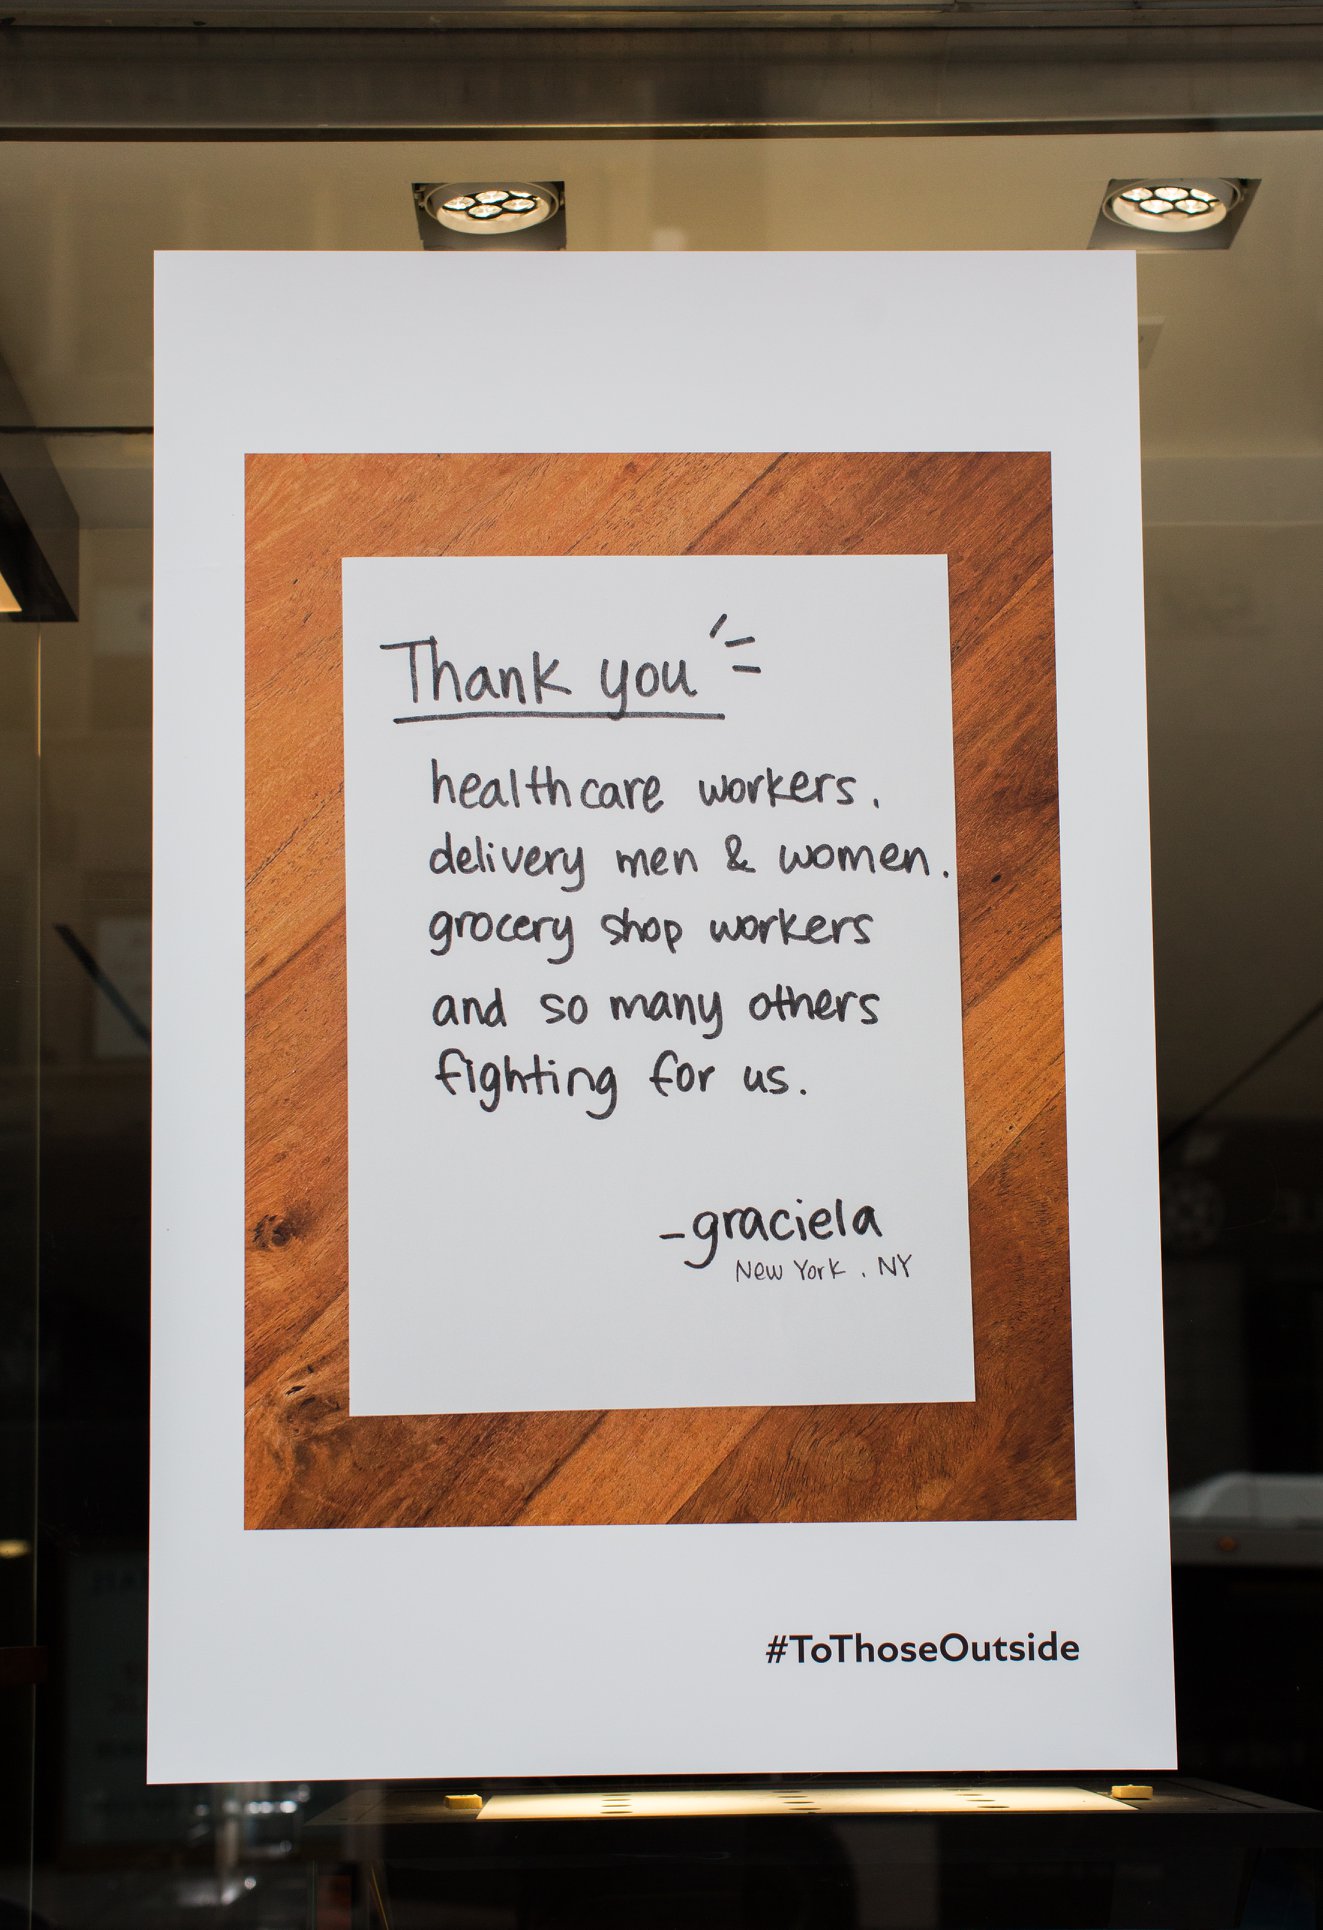 Thank you
healthcare workers.
delivery men & women.
grocery shop workers
and so many others
fighting for us.
-graciela
New York . NY
#ToThoseOutside